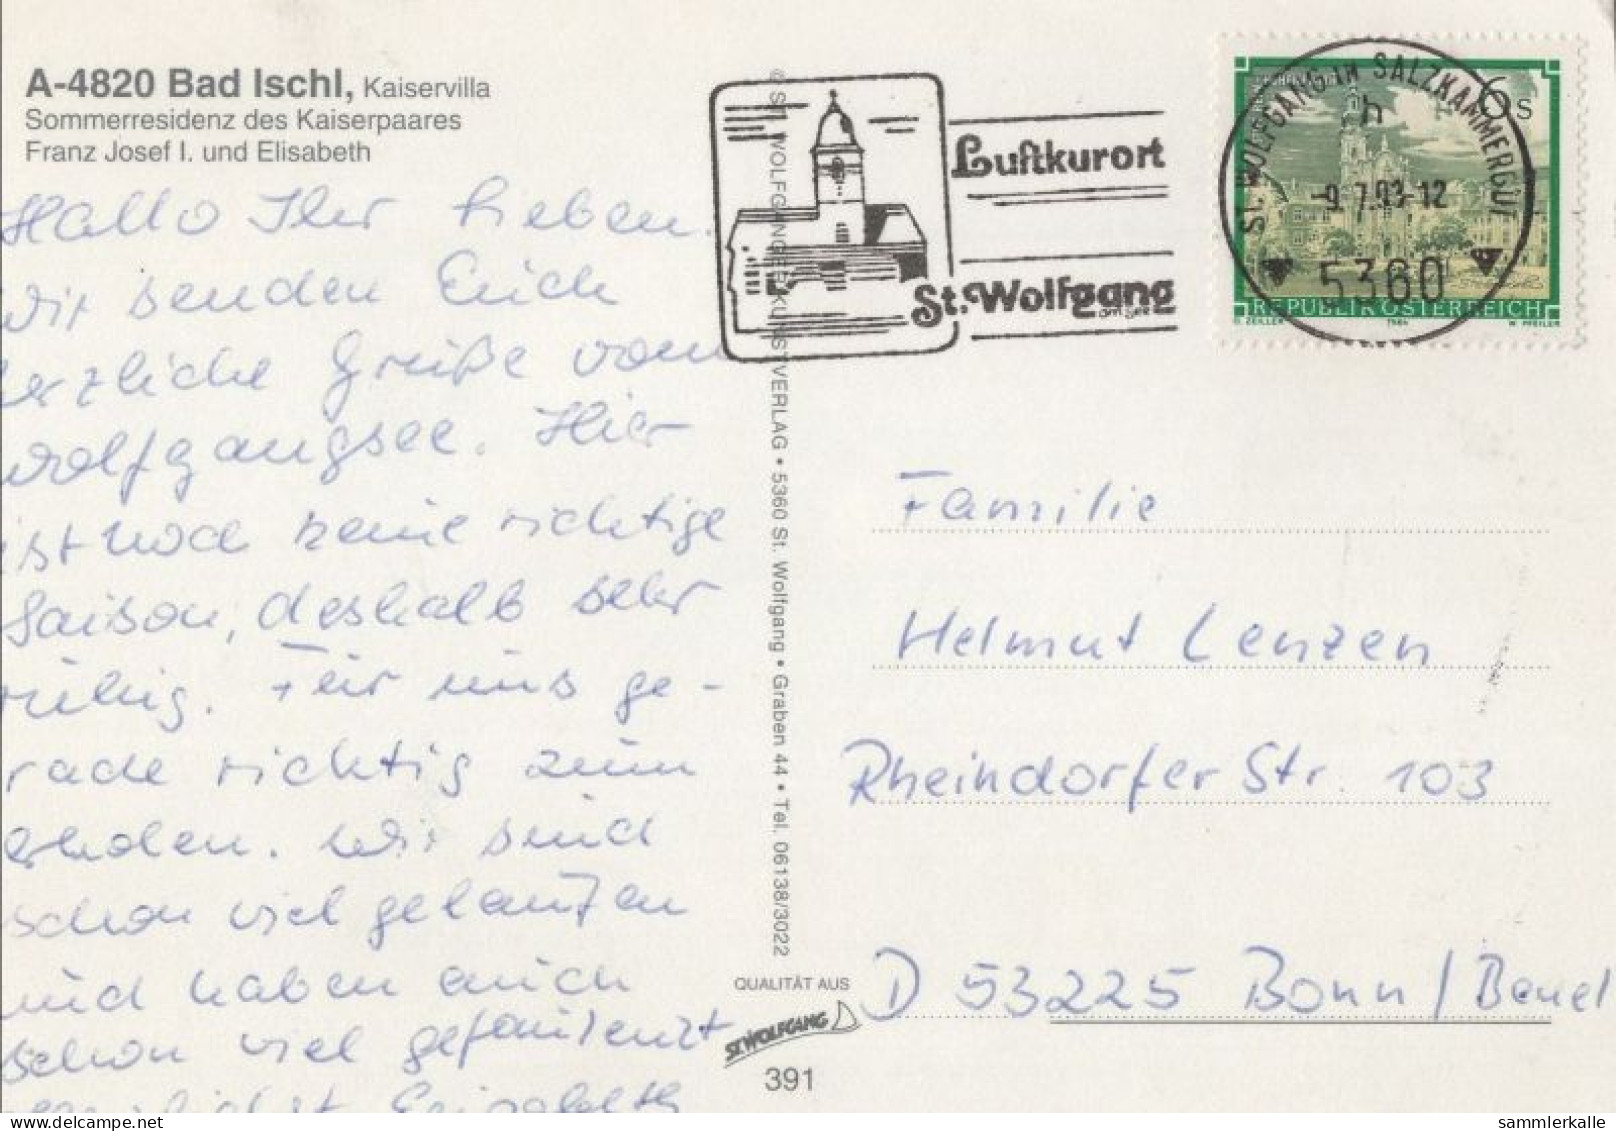 A-4820 Bad Ischl, Kaiservilla
Sommerresidenz des Kaiserpaares
Franz Josef I. und Elisabeth
Hallo Ihr Lieben.
wir senden Euch
erzliche Grüße vom
wolfgangsee. Hier
ist noch keine richtige
Saison, deshalb sehr
ruhig. Für uns ge-
rade richtig zum
erholen. Wir sind
schon viel gelaufen
und haben auch
schon viel gefaulenzt
Luftkurort
St. Wolfgang
am See
ST. WOLFGANG IM SALZKAMMERGUT
h
-9.7.93-12
5360
6 S
REPUBLIK ÖSTERREICH
O. ZEILLER 1984 W. PFEILER
© ST. WOLFGANGER KUNSTVERLAG • 5360 St. Wolfgang • Graben 44 • Tel. 06138/3022
Familie
Helmut Lenzen
Rheindorfer Str. 103
D 53225 Bonn / Beuel
QUALITÄT AUS
ST. WOLFGANG
391
sammlerkalle